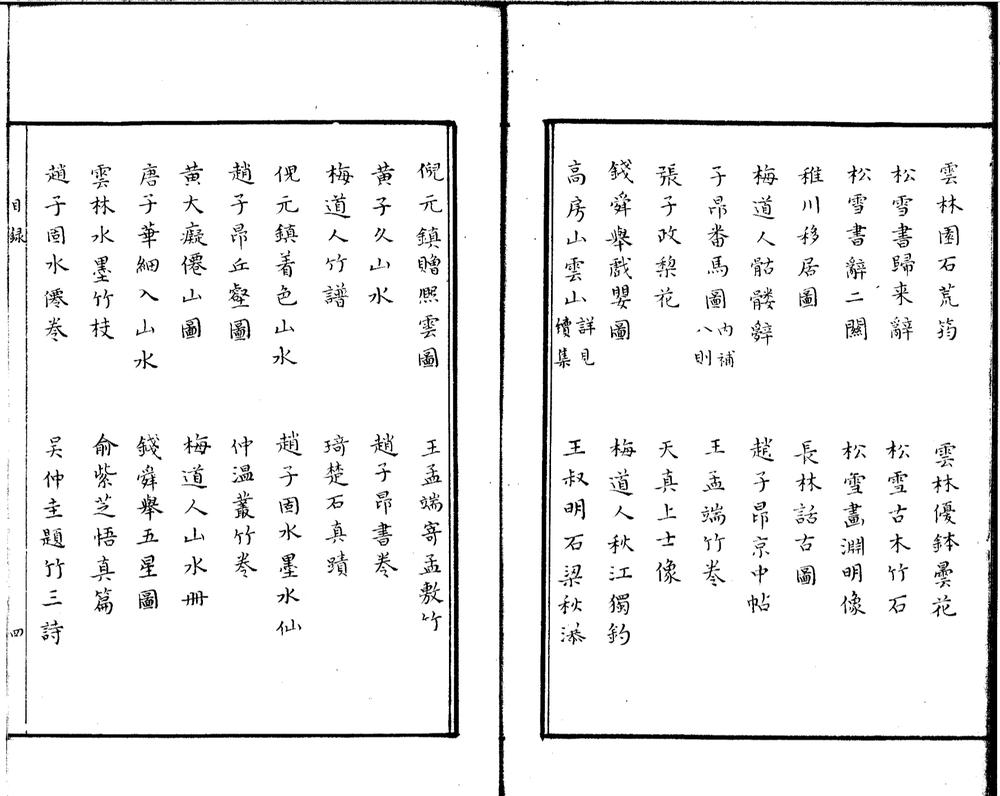 雲林園石荒筠　雲林優鉢曇花
松雪書歸来辭　松雪古木竹石
松雪書辭二闋　松雪畫淵明像
稚川移居圖　長林話古圖
梅道人骷髏辭　趙子昂京中帖
子昂番馬圖内補八則　王孟端竹卷
張子政梨花　天真上士像
錢舜舉戲嬰圖　梅道人秋江獨釣
高房山雲山詳見續集　王叔明石梁秋瀑
倪元鎮贈熈雲圖　王孟端寄孟敷竹
黃子久山水　趙子昂書卷
梅道人竹譜　琦楚石真蹟
倪元鎮着色山水　趙子固水墨水仙
趙子昂丘壑圖　仲溫叢竹卷
黃大癡僊山圖　梅道人山水冊
唐子華細入山水　錢舜舉五星圖
雲林水墨竹枝　俞紫芝悟真篇
趙子固水僊卷　吴仲圭題竹三詩
目錄　四